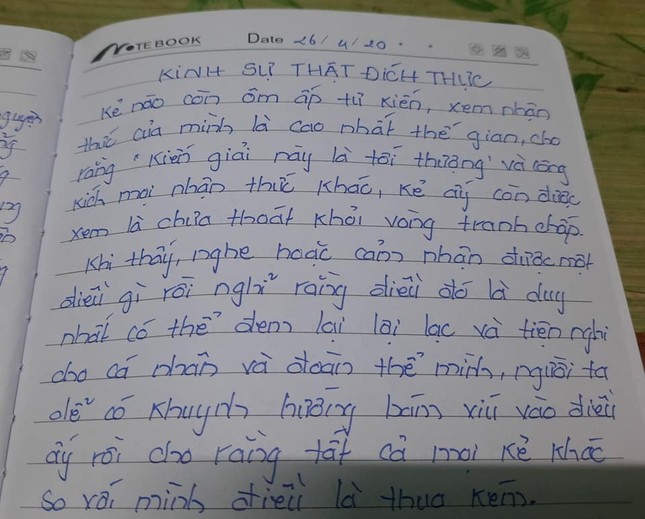 NOTEBOOK Date 26/4/20
KINH SỰ THẬT ĐÍCH THỰC
Kẻ nào còn ôm ấp tư kiến, xem nhận
thức của mình là cao nhất thế gian, cho
rằng "kiến giải này là tối thượng" và công
kích mọi nhận thức khác, kẻ ấy còn được
xem là chưa thoát khỏi vòng tranh chấp.
Khi thấy, nghe hoặc cảm nhận được một
điều gì rồi nghĩ rằng điều đó là duy
nhất có thể đem lại lợi lạc và tiện nghi
cho cá nhân và đoàn thể mình, người ta
dễ có khuynh hướng bám víu vào điều
ấy rồi cho rằng tất cả mọi kẻ khác
so với mình điều là thua kém.